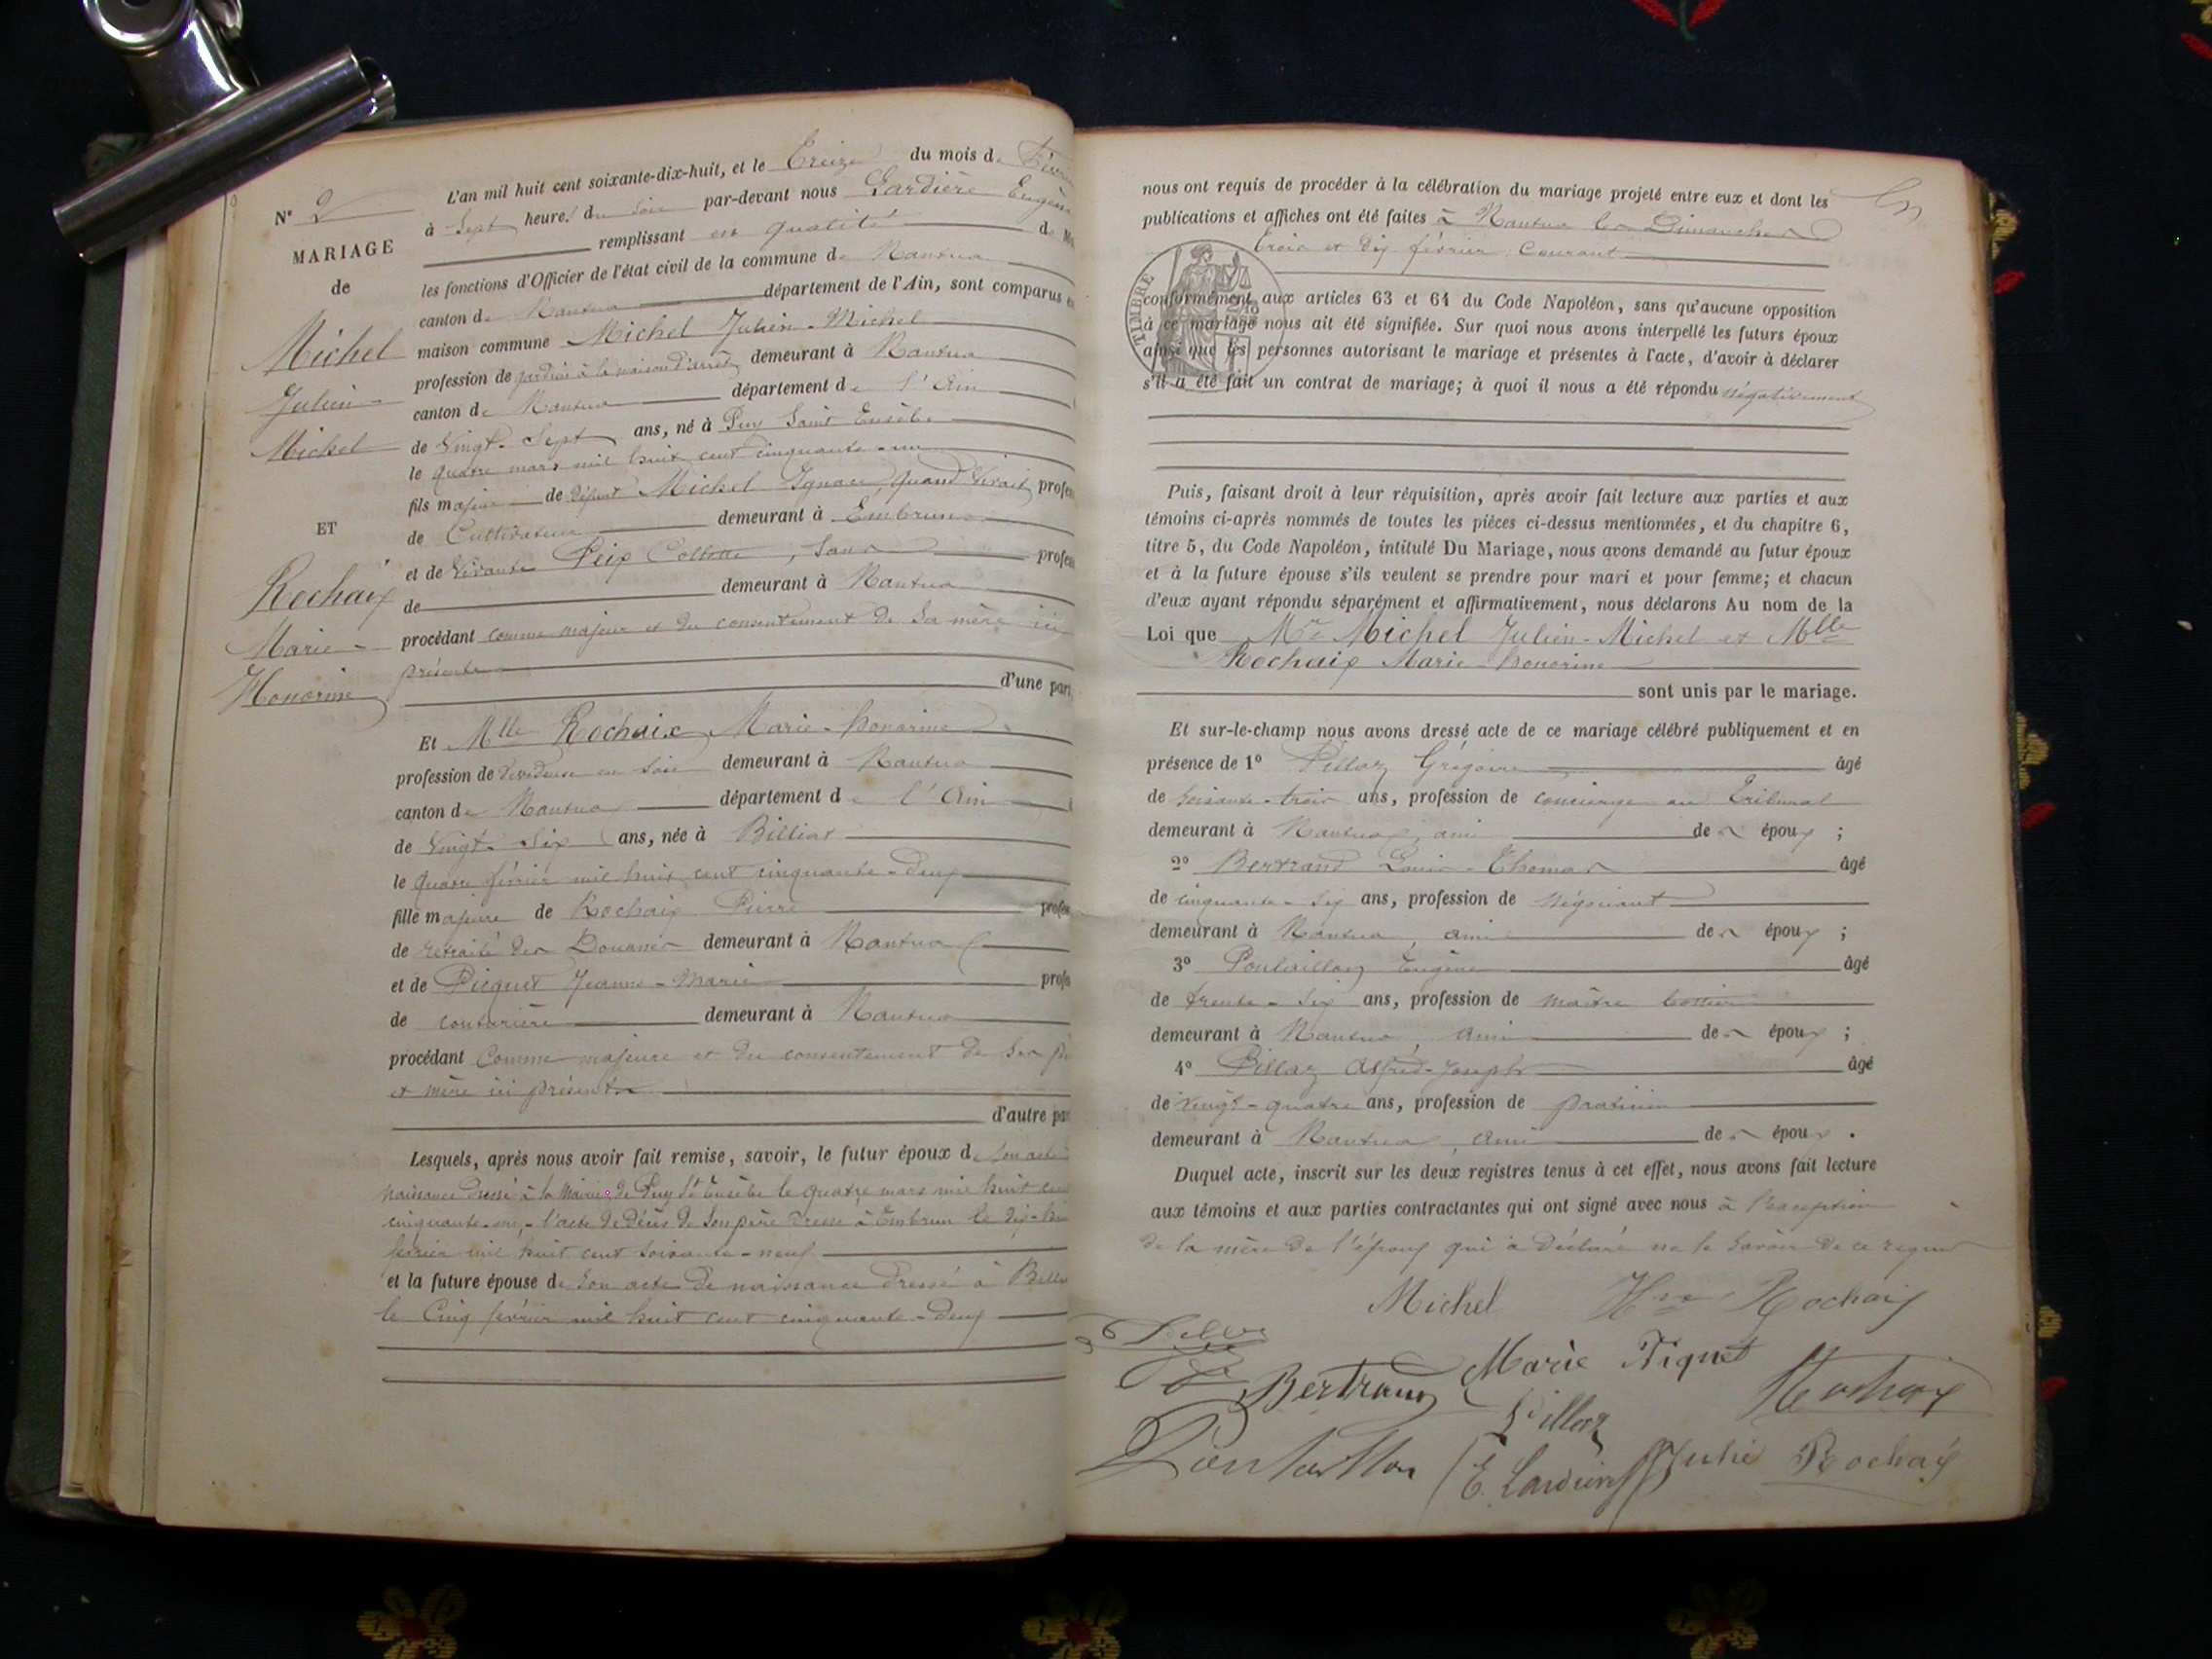 N° 2
MARIAGE
de
Michel
Julien
Michel
ET
Rochaix
Marie
Honorine
L'an mil huit cent soixante-dix-huit, et le Treize du mois de
à Sept heures du soir par-devant nous Lardière Eugène
remplissant en qualité de
les fonctions d'Officier de l'état civil de la commune de Nantua
canton de Nantua département de l'Ain, sont comparus en
maison commune Michel Julien-Michel
profession de gardien à la maison d'arrêt demeurant à Nantua
canton de Nantua département de l'Ain
de Vingt-Sept ans, né à Puy Saint Eusèbe
le quatre mars mil huit cent cinquante-un
fils majeur de défunt Michel Ignace, quand vivait
de Cultivateur demeurant à Embrun
et de vivante Peix Colette, sans
de demeurant à Nantua
procédant comme majeur et du consentement de sa mère ici
présente
d'une part,
Et Mlle Rochaix Marie-honorine
profession de Dévideuse en soie demeurant à Nantua
canton de Nantua département de l'Ain
de Vingt-Six ans, née à Billiat
le quatre février mil huit cent cinquante-deux
fille majeure de Rochaix Pierre
de retraité des Douanes demeurant à Nantua
et de Picquet Jeanne-Marie
de couturière demeurant à Nantua
procédant Comme majeure et du consentement de ses
et mère ici présents
d'autre
Lesquels, après nous avoir fait remise, savoir, le futur époux de son acte
naissance dressé à la Mairie de Puy St Eusèbe le quatre mars mil huit cent
cinquante-un, l'acte de décès de son père dressé à Embrun le
février mil huit cent soixante-neuf
et la future épouse de son acte de naissance dressé à
le Cinq février mil huit cent cinquante-deux
nous ont requis de procéder à la célébration du mariage projeté entre eux et dont les
publications et affiches ont été faites à Nantua les Dimanches
trois et dix février courant
TIMBRE
conformément aux articles 63 et 64 du Code Napoléon, sans qu'aucune opposition
à ce mariage nous ait été signifiée. Sur quoi nous avons interpellé les futurs époux
ainsi que les personnes autorisant le mariage et présentes à l'acte, d'avoir à déclarer
s'il a été fait un contrat de mariage; à quoi il nous a été répondu négativement
Puis, faisant droit à leur réquisition, après avoir fait lecture aux parties et aux
témoins ci-après nommés de toutes les pièces ci-dessus mentionnées, et du chapitre 6,
titre 5, du Code Napoléon, intitulé Du Mariage, nous avons demandé au futur époux
et à la future épouse s'ils veulent se prendre pour mari et pour femme; et chacun
d'eux ayant répondu séparément et affirmativement, nous déclarons Au nom de la
Loi que Mr Michel Julien-Michel et Mlle
Rochaix Marie-honorine
sont unis par le mariage.
Et sur-le-champ nous avons dressé acte de ce mariage célébré publiquement et en
présence de 1° Pillaz Grégoire âgé
de soixante-trois ans, profession de concierge au Tribunal
demeurant à Nantua, ami des époux ;
2° Bertrand Louis-Thomas âgé
de cinquante-six ans, profession de négociant
demeurant à Nantua, ami des époux ;
3° Eugène âgé
de trente-six ans, profession de maître
demeurant à Nantua, ami des époux ;
4° Pillaz Alfred-Joseph âgé
de Vingt-quatre ans, profession de praticien
demeurant à Nantua, ami des époux .
Duquel acte, inscrit sur les deux registres tenus à cet effet, nous avons fait lecture
aux témoins et aux parties contractantes qui ont signé avec nous à l'exception
de la mère de l'époux qui a déclaré ne le savoir de ce requise
Michel Hne Rochaix
Bertrand Marie Piquet Rochaix
Pillaz
E. Lardière Julie Rochaix